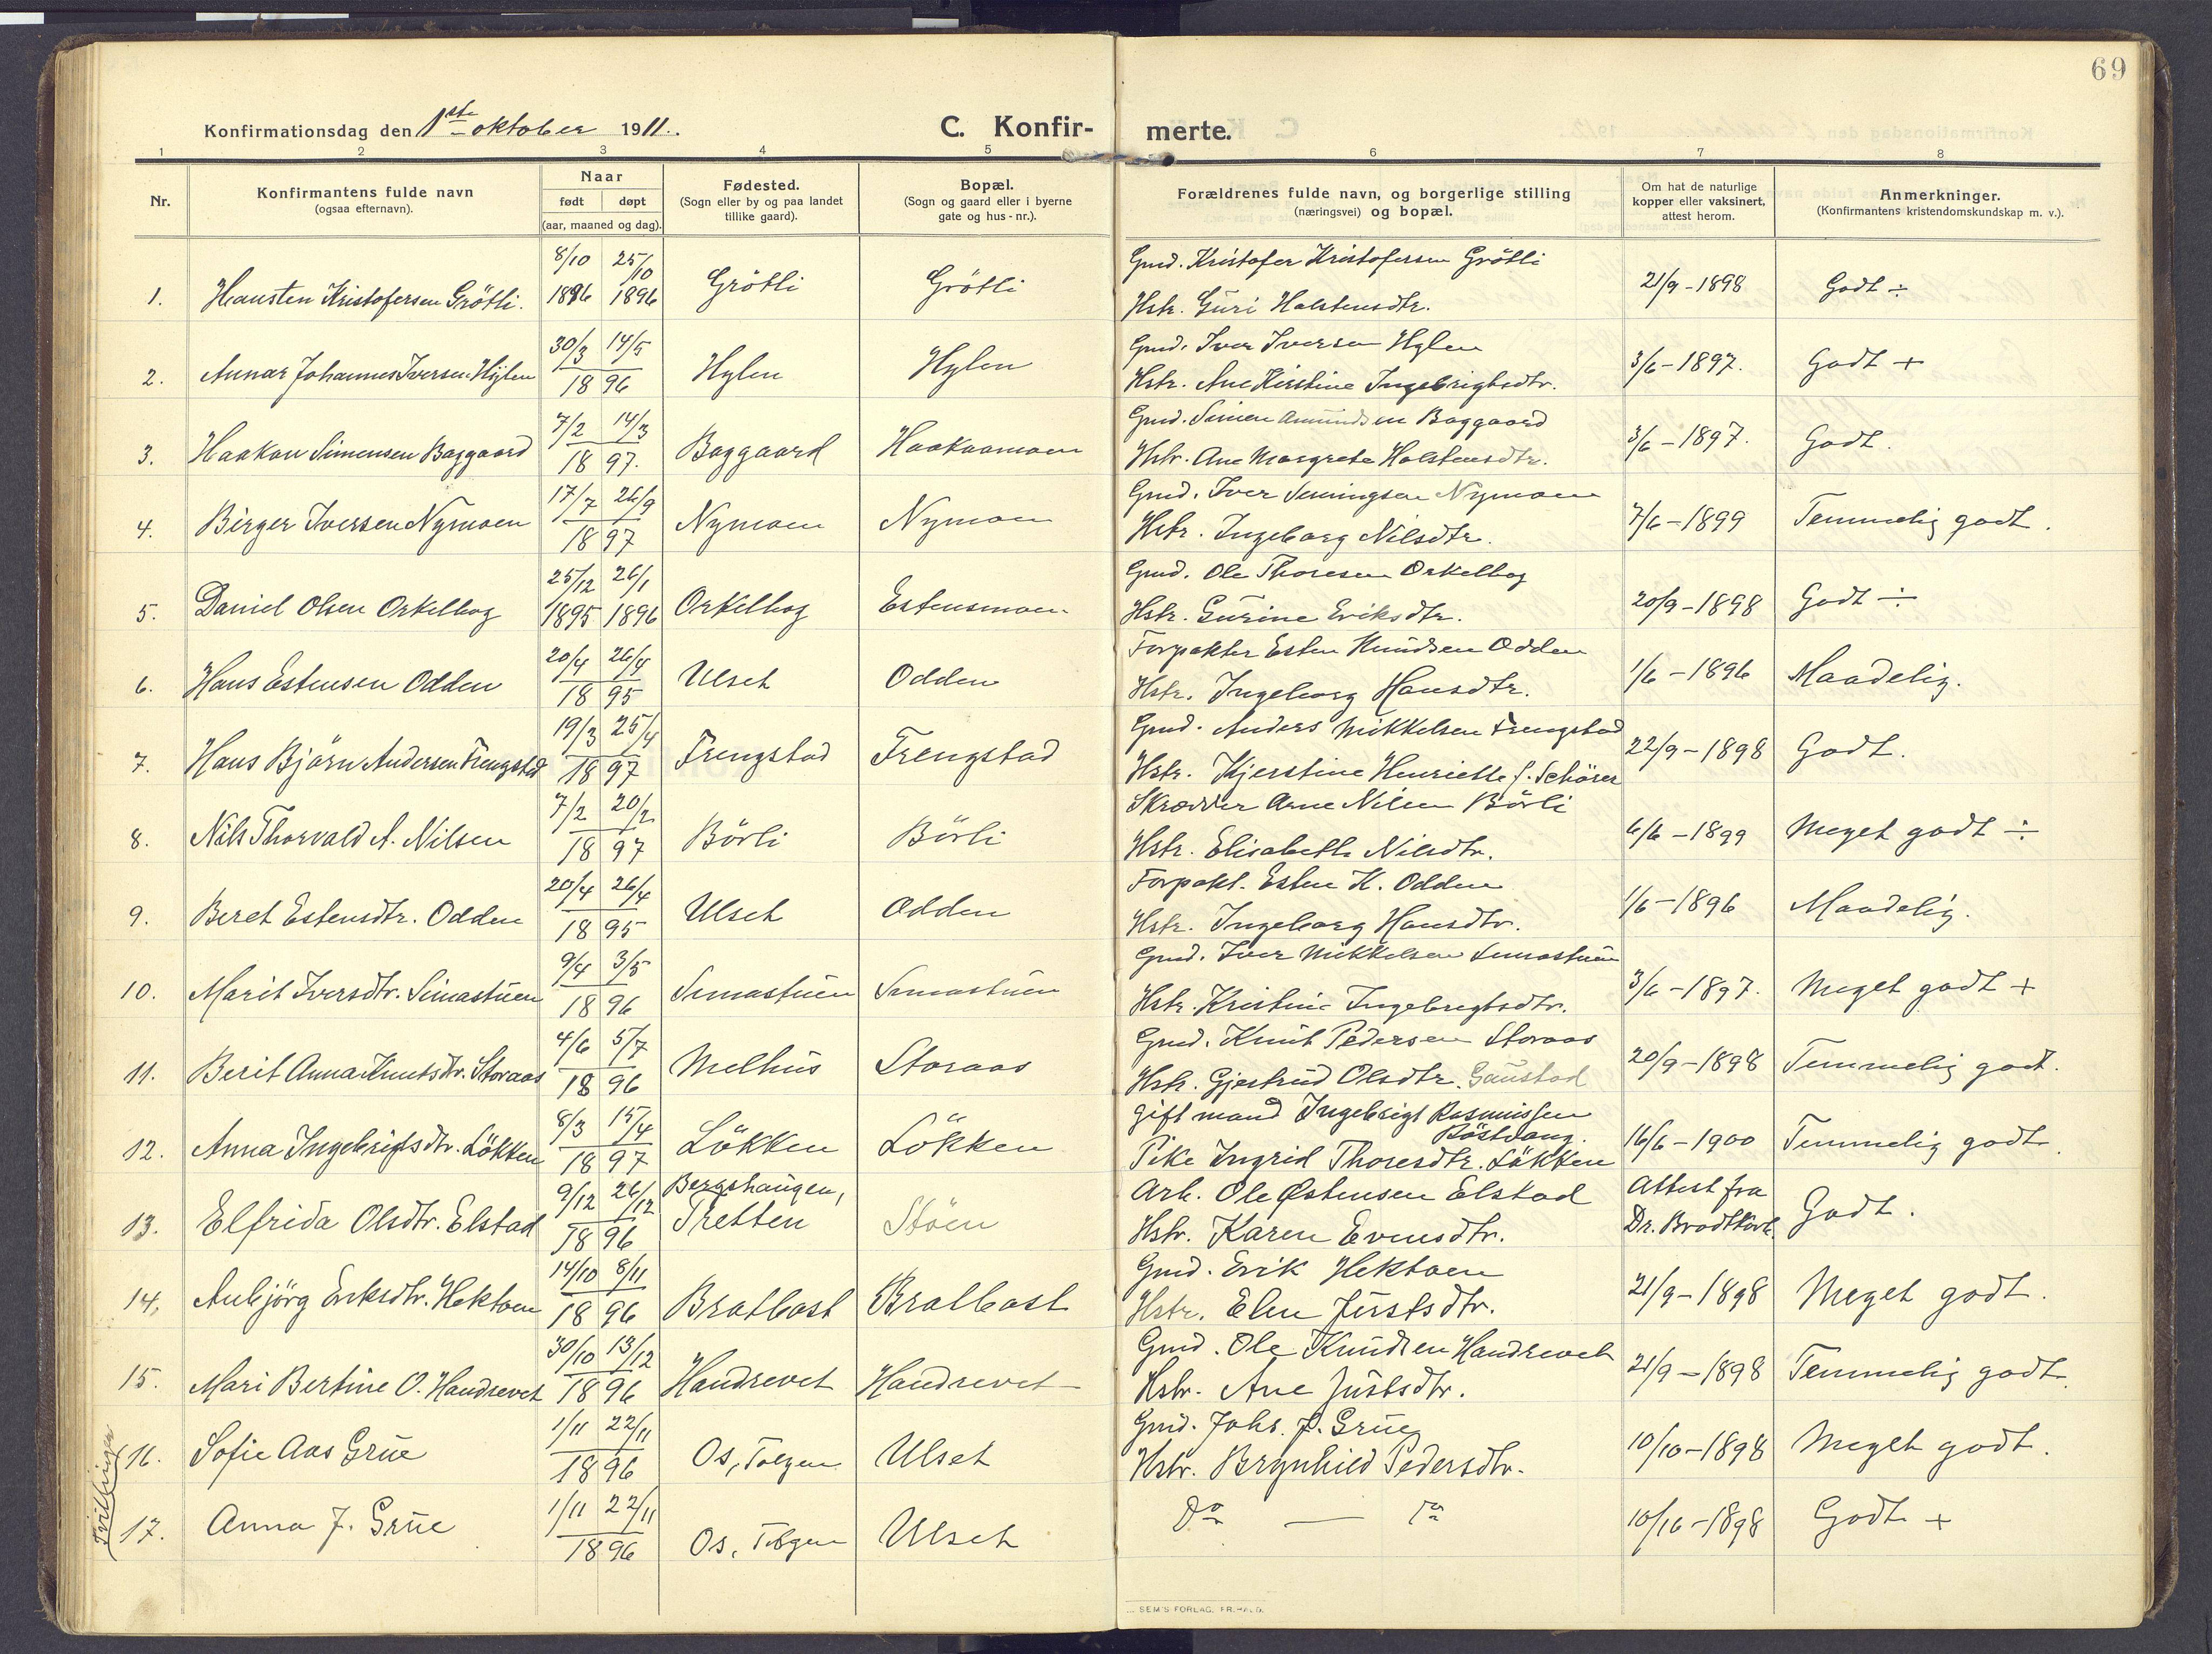 69
Konfirmationsdag den 1ste oktober 1911.
C. Konfir- merte.
1 2 3 4 5 6 7 8
Nr.
Konfirmantens fulde navn
(ogsaa efternavn).
Naar
født døpt
(aar, maaned og dag).
Fødested.
(Sogn eller by og paa landet
tillike gaard).
Bopæl.
(Sogn og gaard eller i byerne
gate og hus-nr.).
Forældrenes fulde navn, og borgerlige stilling
(næringsvei) og bopæl.
Om hat de naturlige
kopper eller vaksinert,
attest herom.
Anmerkninger.
(Konfirmantens kristendomskundskap m. v.).
8/10 25/10 Gmd. Kristofer Kristofersen Grötli
1. Hausten Kristofersen Grötli. 1896 1896 Grötli Grötli Hstr. Guri Halstensdtr. 21/9-1898 Godt ÷
30/3 14/5 Gmd. Iver Iversen Hylen
2. Annar Johannes Iversen Hylen 18 96 Hylen Hylen Hstr. Ane Kirstine Ingebrigtsdtr. 3/6-1897. Godt +
7/2 14/3 Gmd. Simen Amundsen Baggaard
3. Haakon Simensen Baggaard 18 97. Baggaard Haakaamoen Hstr. Ane Margrete Halstensdtr. 3/6-1897. Godt.
17/7 26/9 Gmd. Iver Nymoen
4. Birger Iversen Nymoen 18 97 Nymoen Nymoen Hstr. Ingeborg Nilsdtr. 7/6-1899 Temmelig godt.
25/12 26/1 Gmd. Ole Thoresen Orkelbog
5. Daniel Olsen Orkelbog 1895 1896 Orkelbog Estensmoen Hstr. Gurine Eriksdtr. 20/9-1898 Godt ÷
20/4 26/4 Forpakter Esten Knudsen Odden
6. Hans Estensen Odden 18 95 Ulset Odden Hstr. Ingeborg Hansdtr. 1/6-1896 Maadelig.
19/3 25/4 Gmd. Anders Mikkelsen Frengstad
7. Hans Björn Andersen Frengstad 18 97 Frengstad Frengstad Hstr. Kjerstine Henriette f. Schörer 22/9-1898 Godt.
7/2 20/2 Skrædder Arne Nilsen Börli
8. Nils Thorvald A. Nilsen 18 97 Börli Börli Hstr. Elisabeth Nilsdtr. 6/6-1899 Meget godt ÷
20/4 26/4 Forpakt. Esten K. Odden
9. Beret Estensdtr. Odden 18 95 Ulset Odden Hstr. Ingeborg Hansdtr. 1/6-1896 Maadelig.
9/4 3/5 Gmd. Iver Mikkelsen Simastuen
10. Marit Iversdtr. Simastuen 18 96 Simastuen Simastuen Hstr. Kristine Ingebrigtsdtr. 3/6-1897. Meget godt +
4/6 5/7 Gmd. Knut Pedersen Storaas
11. Berit Anna Knutsdtr. Storaas 18 96 Melhus Storaas Hstr. Gjertrud Olsdtr. Gaustad 20/9-1898 Temmelig godt.
8/3 15/4 Gift mand Ingebrigt Rasmussen
Röstvang.
12. Anna Ingebrigtsdtr. Løkken 18 97 Lökken Lökken Pike Ingrid Thoresdtr. Løkken 16/6-1900 Temmelig godt.
9/12 26/12 Bergshaugen, Arb. Ole Østensen Elstad Attest fra
13. Elfrida Olsdtr. Elstad 18 96 Tretten Stöen Hstr. Karen Evensdtr. Dr. Brodtkorb. Godt.
14/10 8/11 Gmd. Erik Hektoen
14. Aubjörg Eriksdtr. Hektoen 18 96 Bratbost Bratbost Hstr. Elen Justsdtr. 21/9-1898 Meget godt.
30/10 13/12 Gmd. Ole Knudsen Haudrevet
15. Mari Bertine O. Haudrevet 18 96 Haudrevet Haudrevet Hstr. Ane Justsdtr. 21/9-1898 Temmelig godt.
1/11 22/11 Gmd. Johs. J. Grue
16. Sofie Aas Grue 18 96 Os, Tolgen Ulset Hstr. Brynhild Pedersdtr. 10/10-1898 Meget godt.
Tvillinger
1/11 22/11 Do — do
17. Anna J. Grue 18 96 Os, Tolgen Ulset 10/10-1898 Godt +
SEM'S FORLAG, FR.HALD.